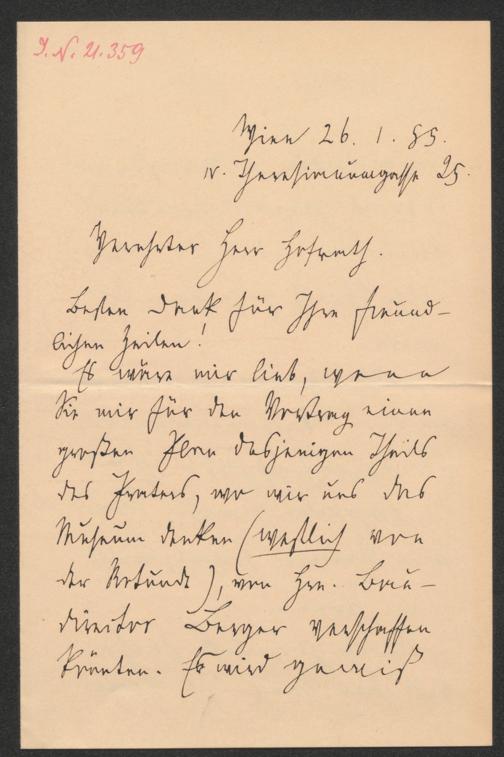 I.N. 21.359
Wien 26. 1. 85.
IV. Theresianumgasse 25.
Verehrter Herr Hofrath.
Besten Dank für Ihre freund-
lichen Zeilen!
Es wäre mir lieb, wenn
Sie mir für den Vortrag einen
großen Plan desjenigen Theils
des Praters, wo wir uns das
Museum denken (westlich von
der Rotunde), von Hrn. Bau-
director Berger verschaffen
könnten. Es wird gewiß